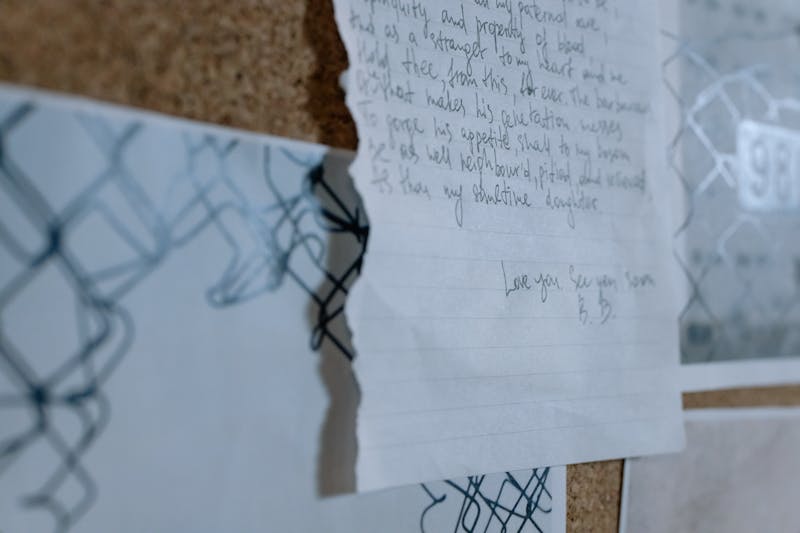 my paternal care,
propinquity and property of blood
And as a stranger to my heart and me
Hold thee, from this, forever. The barbarous
makes his generation messes
To gorge his appetite shall to my bosom
Be as well neighbour'd, pitied, and relieved
As thou my sometime daughter.
Love you See you soon
B. B.
98